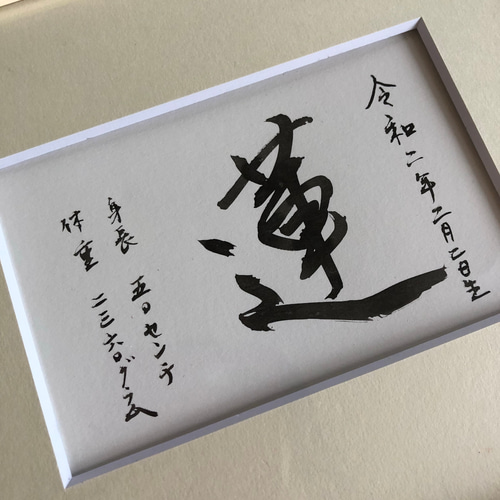 令和二年二月二日生
蓮
身長 五〇センチ
体重 二三六〇グラム